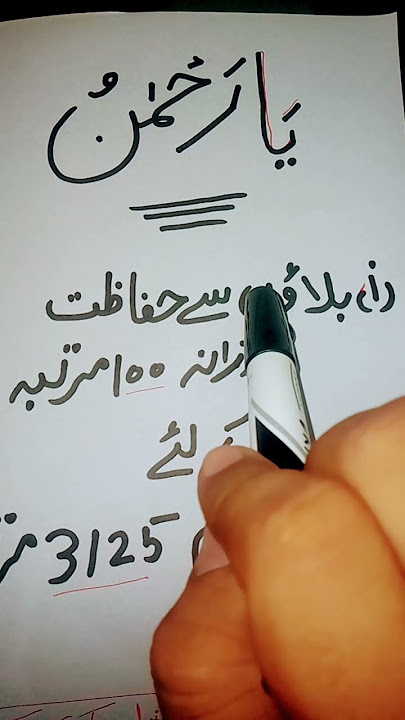 یَا رَحْمٰنُ
بلاؤں سے حفاظت
زانہ 100 مرتبہ
لئے
3125 مر